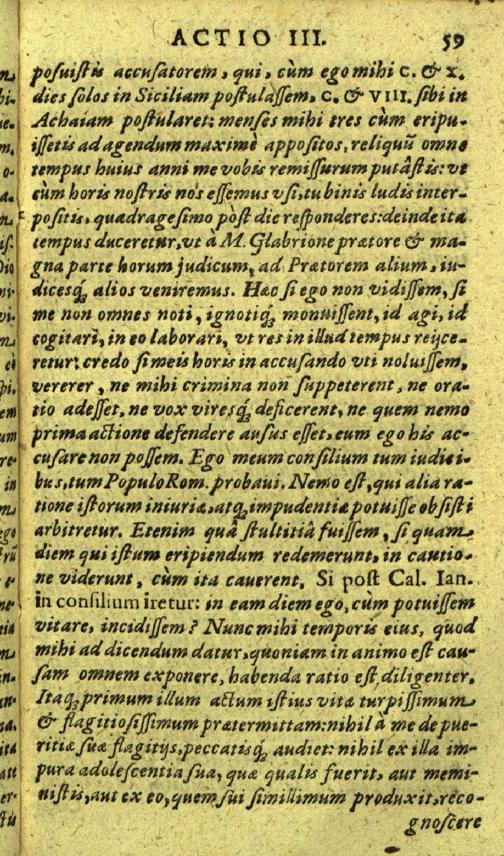 ACTIO III. 59
posuistis accusatorem, qui, cùm ego mihi C. & X.
dies solos in Siciliam postulassem, C. & VIII. sibi in
Achaiam postularet: menses mihi tres cùm eripu-
issetis ad agendum maximè appositos, reliquũ omne
tempus huius anni me vobis remissurum putâstis: vt
cùm horis nostris nos essemus vsi, tu binis ludis inter-
positis, quadragesimo pòst die responderes: deinde ita
tempus duceretur, vt à M. Glabrione prætore & ma-
gna parte horum judicum, ad Prætorem alium, iu-
dicesq́; alios veniremus. Hæc si ego non vidissem, si
me non omnes noti, ignotiq́; monuissent, id agi, id
cogitari, in eo laborari, vt res in illud tempus reijce-
retur: credo si meis horis in accusando vti noluissem,
vererer, ne mihi crimina non suppeterent, ne ora-
tio adesset, ne vox viresq́; deficerent, ne quem nemo
prima actione defendere ausus esset, eum ego his ac-
cusare non possem. Ego meum consilium tum iudici-
bus, tum Populo Rom. probaui. Nemo est, qui alia ra-
tione istorum iniuriæ, atq́; impudentiæ potuisse obsisti
arbitretur. Etenim quâ stultitiâ fuissem, si quam
diem qui istum eripiendum redemerunt, in cautio-
ne viderunt, cùm ita cauerent, Si post Cal. Ian.
in consilium iretur: in eam diem ego, cùm potuissem
vitare, incidissem? Nunc mihi temporis eius, quod
mihi ad dicendum datur, quoniam in animo est cau-
sam omnem exponere, habenda ratio est diligenter.
Itaq́; primum illum actum istius vitæ turpissimum
& flagitiosissimum prætermittam: nihil à me de pue-
ritiæ suæ flagitijs, peccatisq́; audiet: nihil ex illa im-
pura adolescentia sua, quæ qualis fuerit, aut memi-
nistis, aut ex eo, quem sui simillimum produxit, reco-
gnoscere